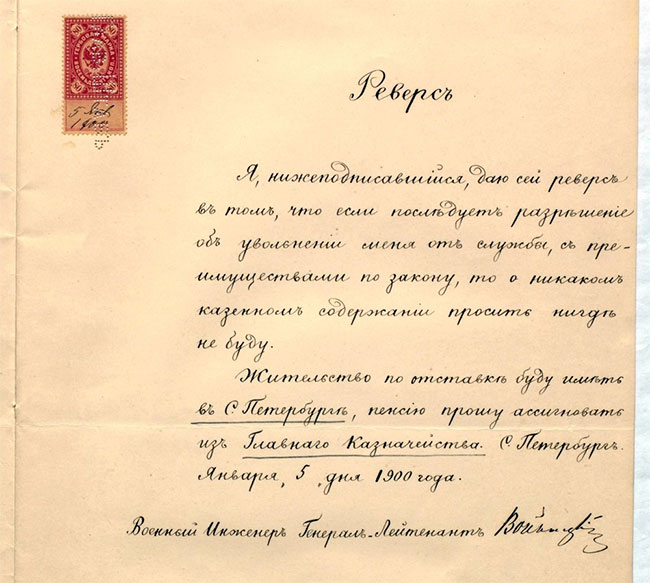 80 80
80 80
5 Янв
1900
Реверсъ
Я, нижеподписавшійся, даю сей реверсъ
въ томъ, что если послѣдуетъ разрѣшеніе
объ увольненіи меня отъ службы, съ пре-
имуществами по закону, то о никакомъ
казенномъ содержаніи просить нигдѣ
не буду.
Жительство по отставкѣ буду имѣть
въ С. Петербургѣ, пенсію прошу ассигновать
изъ Главнаго Казначейства. С. Петербургъ.
Января, 5 дня 1900 года.
Военный Инженеръ Генералъ-Лейтенантъ